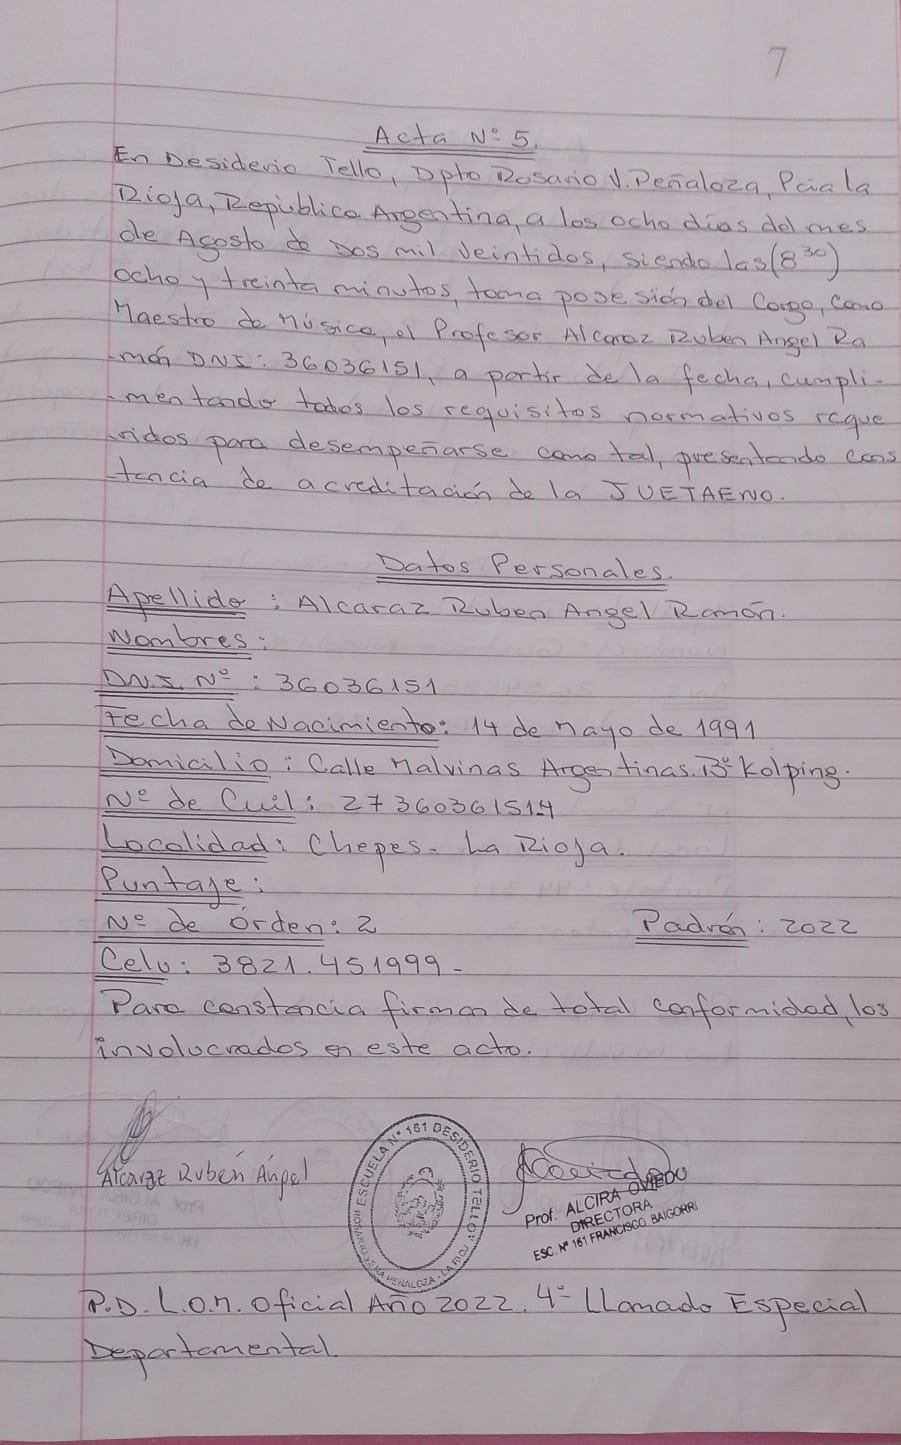 7
Acta Nº 5.
En Desiderio Tello, Dpto Rosario V. Peñaloza, Pcia la
Rioja, Republica Argentina, a los ocho días del mes
de Agosto de Dos mil Veintidos, siendo las (8³⁰)
ocho y treinta minutos, toma posesión del Cargo, como
Maestro de Música, el Profesor Alcaraz Ruben Angel Ra
món DNI: 36036151, a partir de la fecha, cumpli-
-mentando todos los requisitos normativos reque
ridos para desempeñarse como tal, presentando Cons
tancia de acreditación de la JUETAENO.
Datos Personales.
Apellido: Alcaraz Ruben Angel Ramón.
Nombres:
D.N.I. Nº: 36036151
Fecha de Nacimiento: 14 de Mayo de 1991
Domicilio: Calle Malvinas Argentinas. Bº Kolping.
Nº de Cuil: 27360361514
Localidad: Chepes - La Rioja.
Puntaje:
Nº de Órden: 2 Padrón: 2022
Celu: 3821.451999-
Para constancia firman de total conformidad, los
involucrados en este acto.
Alcaraz Rubén Ángel
ESCUELA Nº 161 DESIDERIO TELLO
ROSARIO VERA PEÑALOZA - LA RIOJA
Prof. ALCIRA OVIEDO
DIRECTORA
ESC. Nº 161 FRANCISCO BAIGORRI
P.D. L.O.M. Oficial Año 2022. 4º Llamado Especial
Departamental.